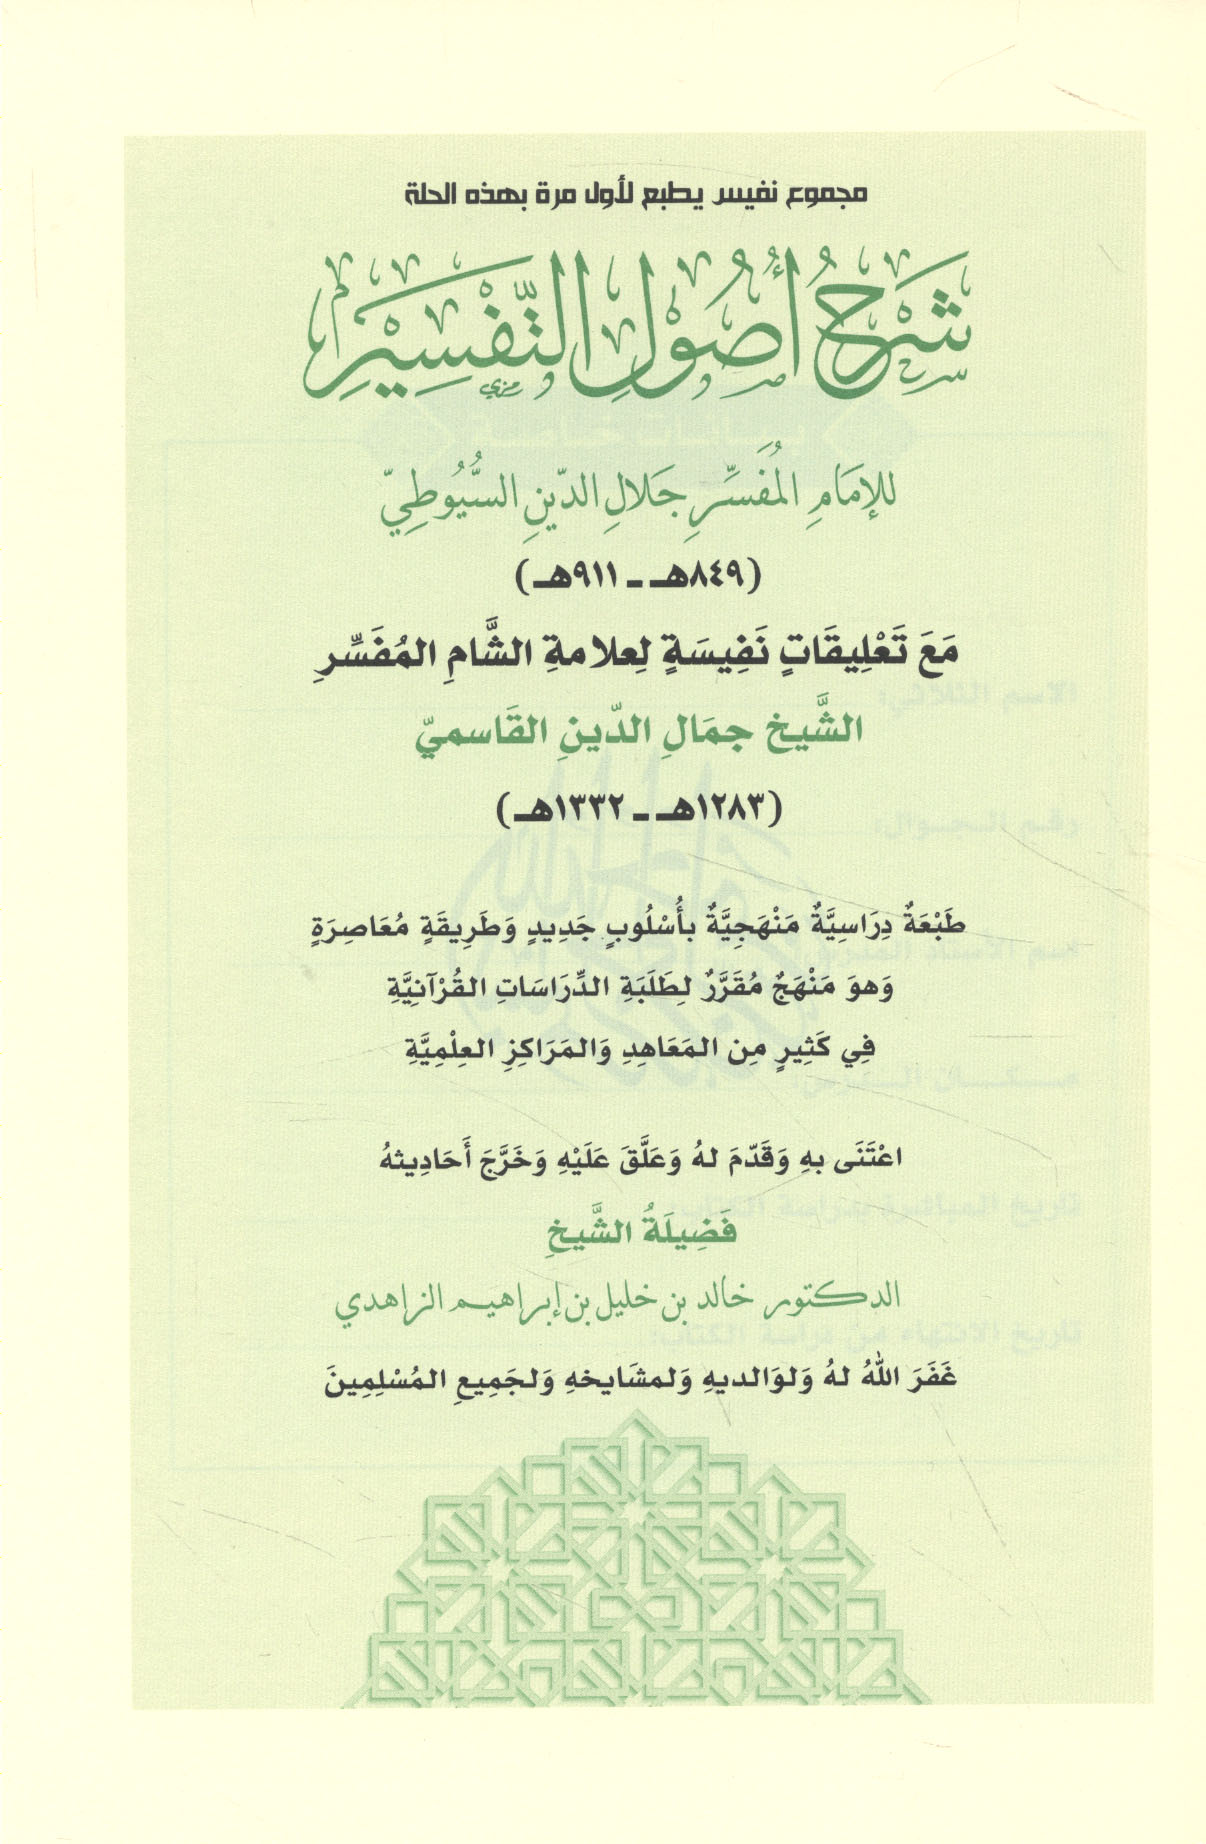 مجموع نفيس يطبع لأول مرة بهذه الحلة
شَرْحُ أُصُولِ التَّفْسِيْرِ
للإمَامِ المُفَسِّرِ جَلالِ الدّينِ السُّيُوطِيّ
(٨٤٩هـ ـ ٩١١هـ)
مَعَ تَعْلِيقَاتٍ نَفِيسَةٍ لِعلامةِ الشَّامِ المُفَسِّرِ
الشَّيخ جمَالِ الدّينِ القَاسميّ
(١٢٨٣هـ ـ ١٣٣٢هـ)
طَبْعَةٌ دِرَاسِيَّةٌ مَنْهَجِيَّةٌ بأُسْلُوبٍ جَدِيدٍ وَطَرِيقَةٍ مُعَاصِرَةٍ
وَهوَ مَنْهَجٌ مُقَرَّرٌ لِطَلَبَةِ الدِّرَاسَاتِ القُرْآنِيَّةِ
فِي كَثِيرٍ مِن المَعَاهِدِ وَالمَرَاكِزِ العِلْمِيَّةِ
اعْتَنَى بهِ وَقَدّمَ لهُ وَعَلَّقَ عَلَيْهِ وَخَرَّجَ أَحَادِيثهُ
فَضِيلَةُ الشَّيخِ
الدكتور خالد بن خليل بن إبراهيم الزاهدي
غَفَرَ اللهُ لهُ وَلوَالديهِ وَلمشَايخهِ وَلجَمِيعِ المُسْلِمِينَ